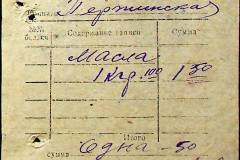 Пержинская
№№ Содержание записи Сумма
Масла
1 кгр. 100 1 50
Итого
Сумма Одна - 50